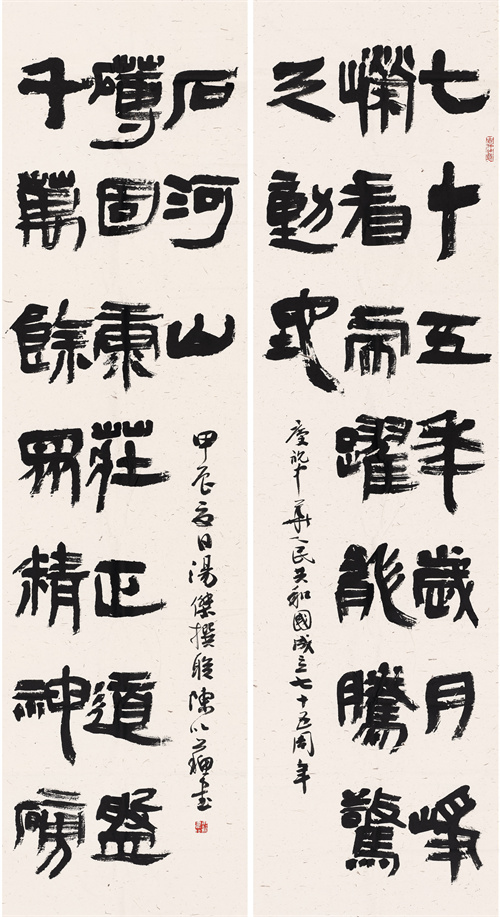 七十五年歲月崢
嶸看虎躍龍騰驚
天動地
慶祝中華人民共和國成立七十五周年
千萬餘眾精神磅
礴固康莊正道盤
石河山
甲辰夏日湯傑撰聯陳以書